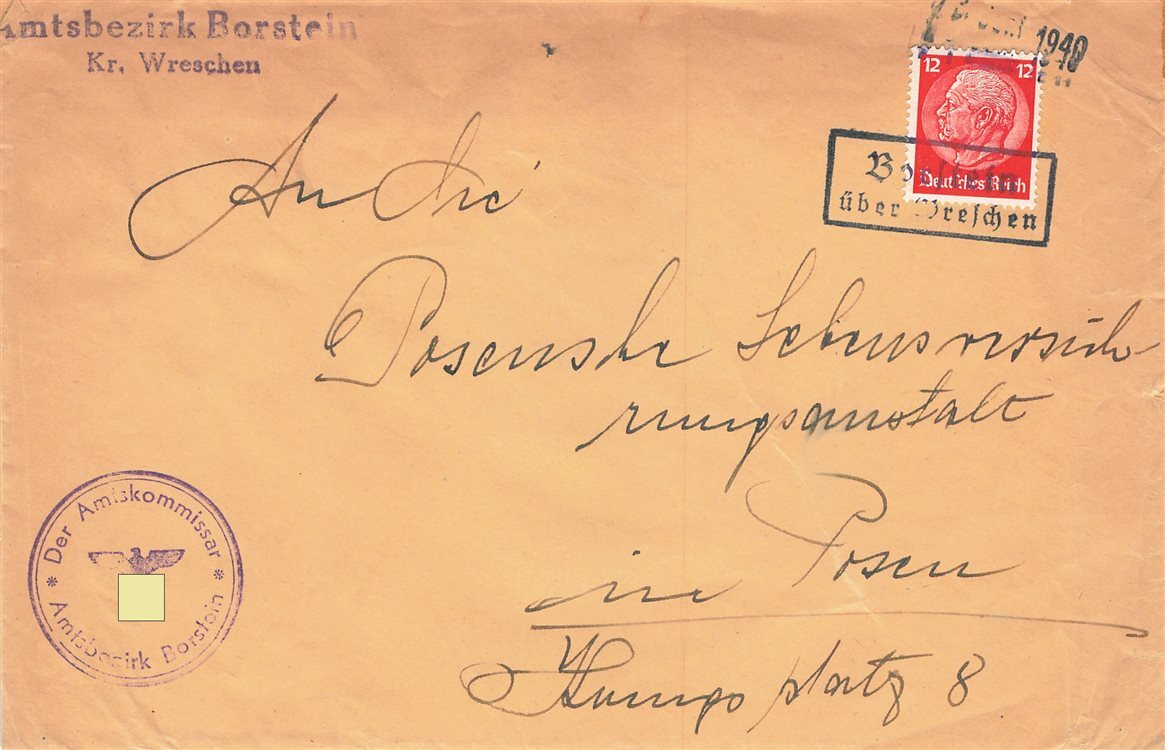 Amtsbezirk Borstein
Kr. Wreschen
1940
12 12
Deutsches Reich
Borstein
über Wreschen
An die
Posenshe Lebensversich-
rungsanstalt
in Posen
Königsplatz 8
* Der Amtskommissar *
Amtsbezirk Borstein